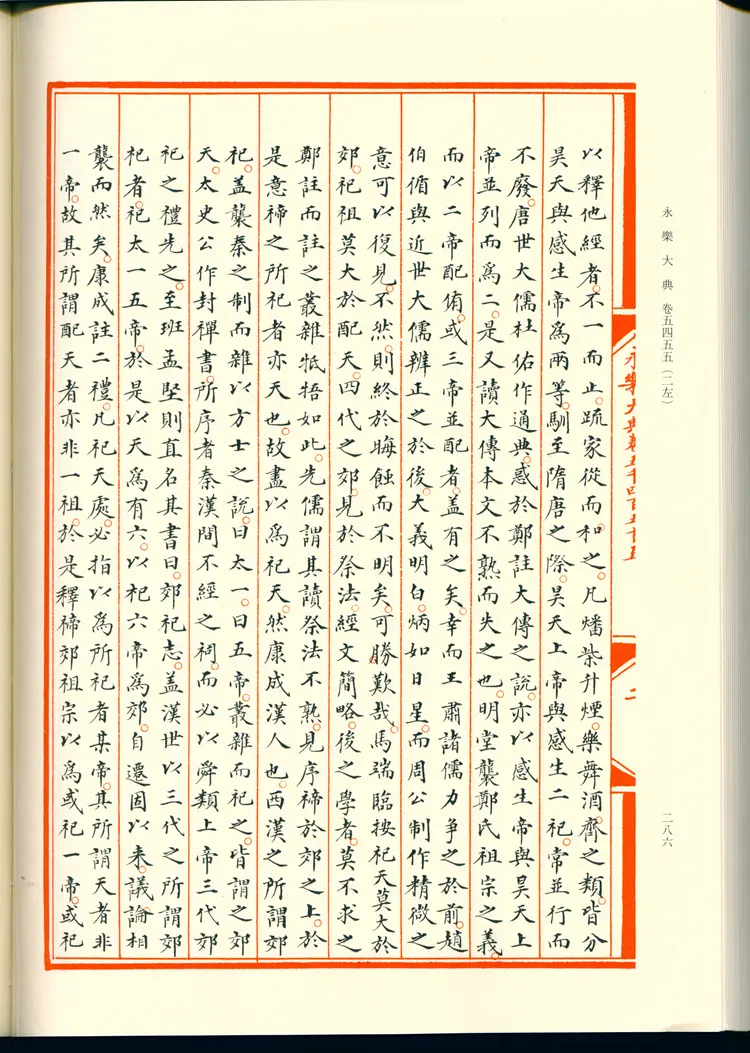 永樂大典 卷五四五五(二左)
二八六
永樂大典卷五千四百五十五
二
以釋他經者。不一而止。疏家從而和之。凡燔柴升煙。樂舞酒齊之類。皆分
昊天與感生帝爲兩等。馴至隋唐之際。昊天上帝與感生二祀。常並行而
不廢。唐世大儒杜佑作通典。惑於鄭註大傳之說。亦以感生帝與昊天上
帝並列而爲二。是又讀大傳本文不熟而失之也。明堂襲鄭氏祖宗之義。
而以二帝配侑。或三帝並配者。盖有之矣。幸而王肅諸儒力爭之於前。趙
伯循與近世大儒辨正之於後。大義明白。炳如日星。而周公制作精微之
意可以復見。不然。則終於晦蝕而不明矣。可勝歎哉。馬端臨按祀天莫大於
郊。祀祖莫大於配天。四代之郊。見於祭法。經文簡略。後之學者。莫不求之
鄭註而註之叢雜牴牾如此。先儒謂其讀祭法不熟。見序禘於郊之上。於
是意禘之所祀者亦天也。故盡以爲祀天。然康成漢人也。西漢之所謂郊
祀。盖襲秦之制而雜以方士之說。曰太一。曰五帝。叢雜而祀之。皆謂之郊
天。太史公作封禪書。所序者秦漢間不經之祠。而必以舜類上帝三代郊
祀之禮先之。至班孟堅則直名其書曰。郊祀志。盖漢世以三代之所謂郊
祀者。祀太一五帝。於是以天爲有六。以祀六帝爲郊。自遷固以来。議論相
襲而然矣。康成註二禮。凡祀天處。必指以爲所祀者某帝。其所謂天者非
一帝。故其所謂配天者亦非一祖。於是釋禘郊祖宗以爲或祀一帝。或祀